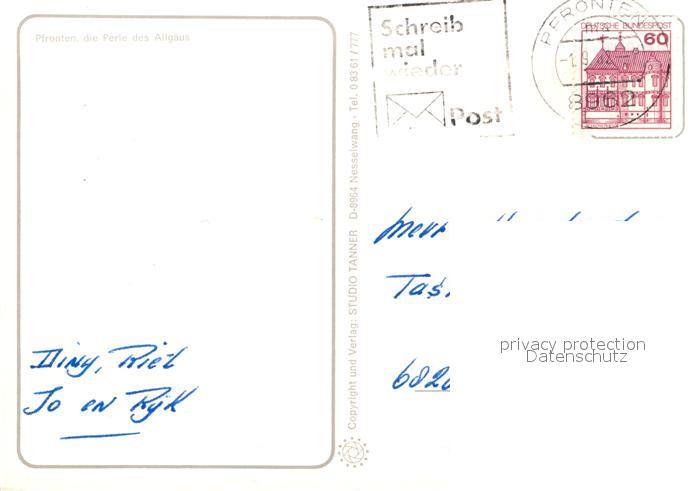 Pfronten, die Perle des Allgäus
Schreib
mal
wieder
Post
PFRONTEN
8962
DEUTSCHE BUNDESPOST
60
Copyright und Verlag: STUDIO TANNER D-8964 Nesselwang - Tel. 0 83 61 / 777
privacy protection
Datenschutz
Diny, Riet
Jo en Rijk